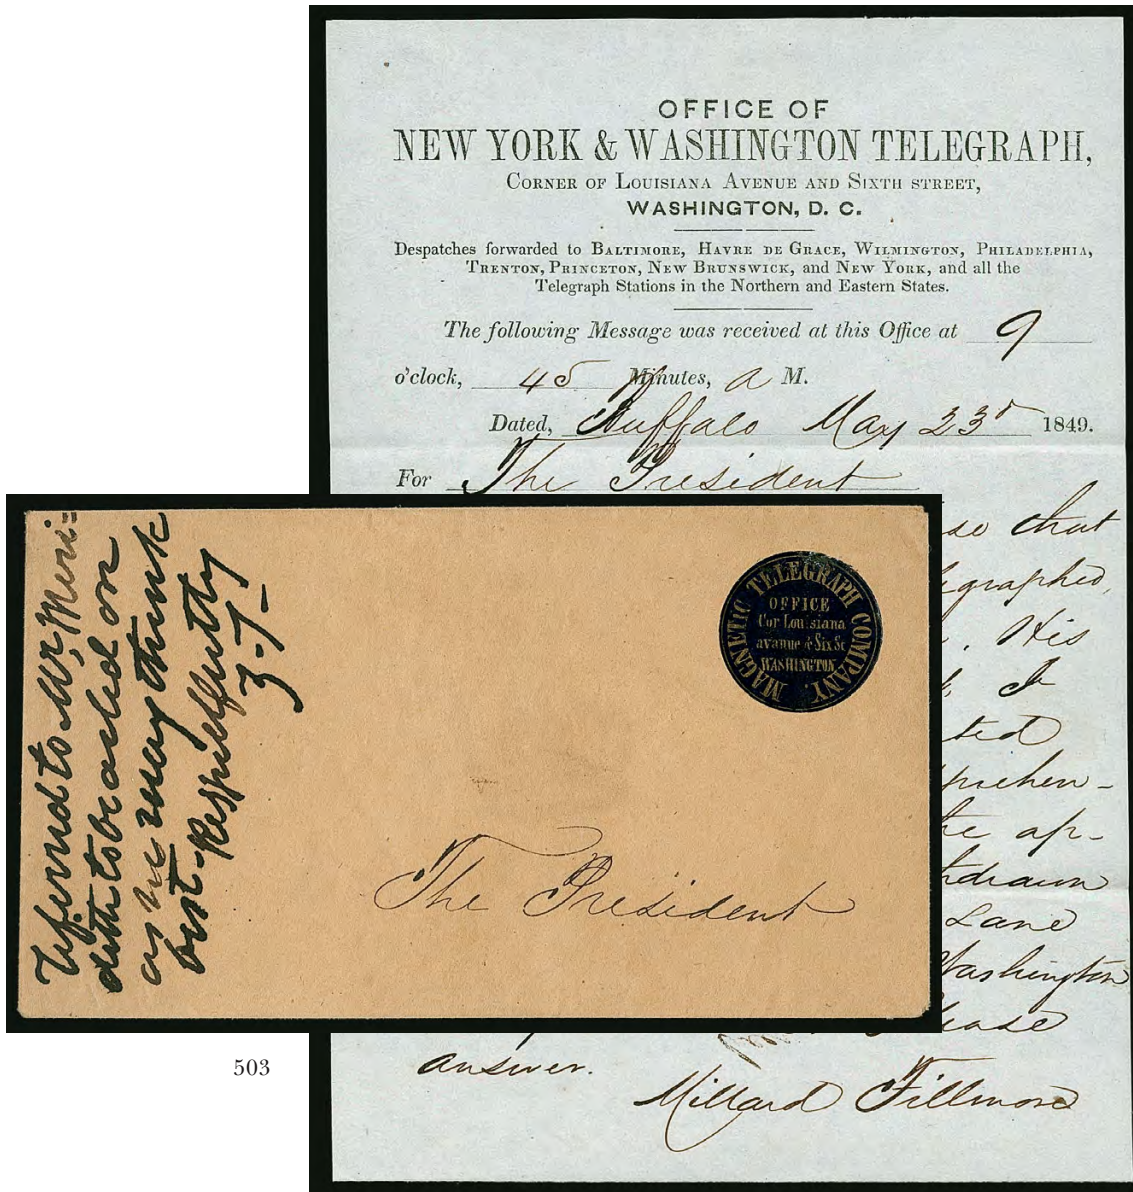 OFFICE OF
NEW YORK & WASHINGTON TELEGRAPH,
CORNER OF LOUISIANA AVENUE AND SIXTH STREET,
WASHINGTON, D. C.
Despatches forwarded to BALTIMORE, HAVRE DE GRACE, WILMINGTON, PHILADELPHIA,
TRENTON, PRINCETON, NEW BRUNSWICK, and NEW YORK, and all the
Telegraph Stations in the Northern and Eastern States.
The following Message was received at this Office at 9
o'clock, 45 Minutes, a M.
Dated, Buffalo May 23d 1849.
For The President
so that
graphed,
His
I
ted
prehen-
he ap-
hdrawn
Lane
Washington
answer.
Millard Fillmore
Referred to Mr, Meri=
dith to be acted on
as he may think
best - Respectfully
Z-T-
MAGNETIC TELEGRAPH COMPANY.
OFFICE
Cor Louisiana
avanue & Six St
WASHINGTON
The President
503